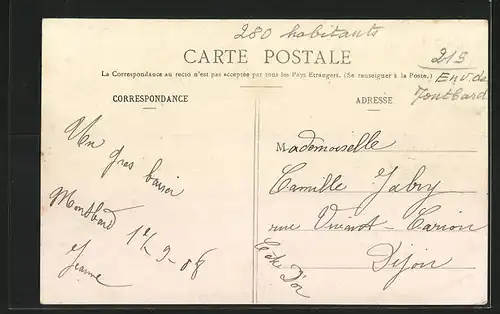 280 habitants
CARTE POSTALE
219
La Correspondance au recto n'est pas acceptée par tous les Pays Etrangers. (Se renseigner à la Poste.)
Env. de
Montbard
CORRESPONDANCE
ADRESSE
Un
gros baiser
Montbard
9-08
Jeanne
Mademoiselle
Camille Jabry
rue
Dijon
Côte d'Or